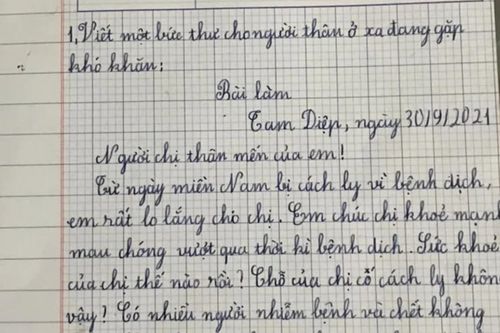 1, Viết một bức thư cho người thân ở xa đang gặp
khó khăn:
Bài làm
Tam Điệp, ngày 30/9/2021
Người chị thân mến của em!
Từ ngày miền Nam bị cách ly vì bệnh dịch,
em rất lo lắng cho chị. Em chúc chị khoẻ mạnh
mau chóng vượt qua thời kì bệnh dịch. Sức khoẻ
của chị thế nào rồi? Chỗ của chị cố cách ly khôn
vậy? Có nhiều người nhiễm bệnh và chết không